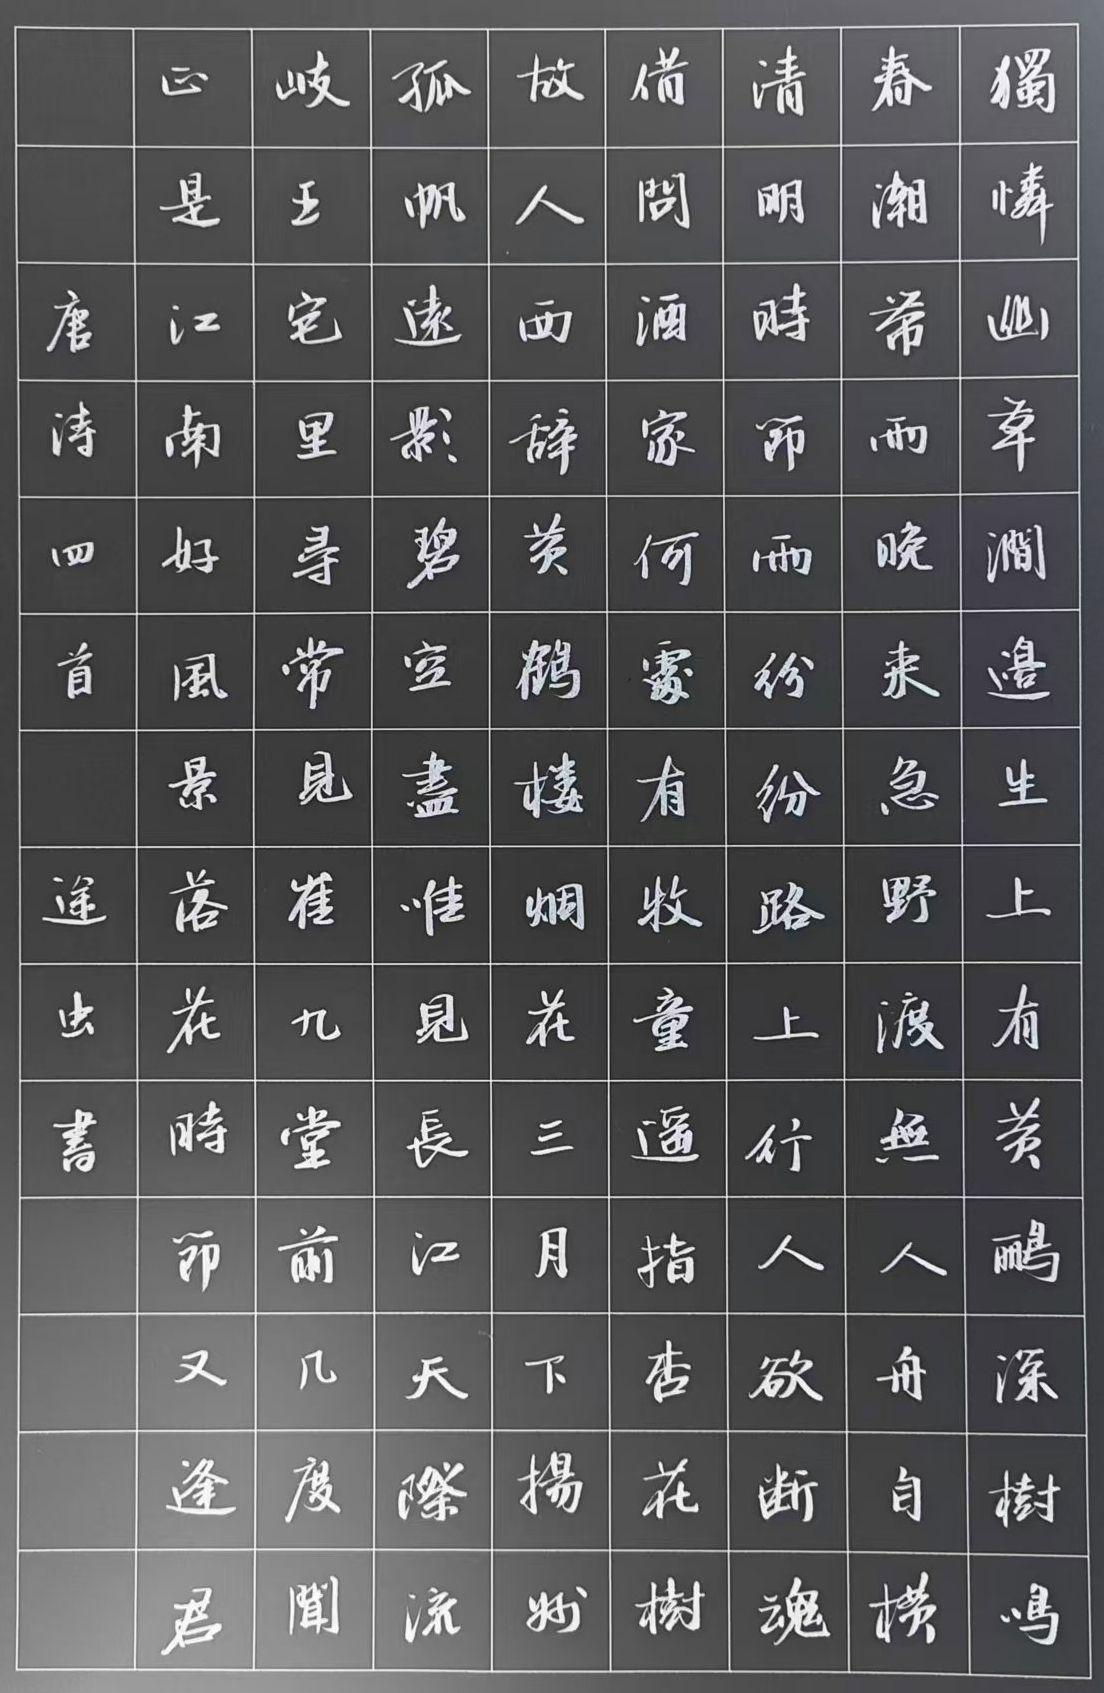 獨憐幽草澗邊生上有黄鸝深樹鳴
春潮帶雨晚来急野渡無人舟自横
清明時節雨紛紛路上行人欲断魂
借問酒家何處有牧童遥指杏花樹
故人西辞黄鶴楼烟花三月下揚州
孤帆遠影碧空盡唯見長江天際流
岐王宅里尋常見崔九堂前几度聞
正是江南好風景落花時節又逢君
唐诗四首
途虫書